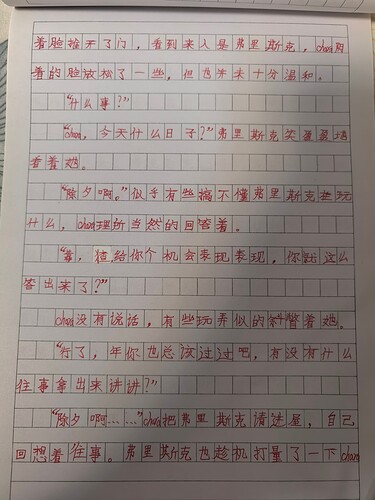 着脸推开了门，看到来人是弗里斯克，chara购
着的脸放松了一些，但也未来十分温和。
“什么事？”
“chara，今天什么日子？”弗里斯克笑盈盈地
看着她。
“除夕啊。”似乎有些搞不懂弗里斯克在玩
什么，chara理所当然的回答着。
“害，给你个机会表现表现，你就这么
答出来了？”
chara没有说话，有些玩弄似的瞥着她。
“行了，年你也总该过过吧，有没有什么
往事拿出来讲讲？”
“除夕啊……”chara把弗里斯克请进屋，自己
回想着往事。弗里斯克也趁机打量了一下chara